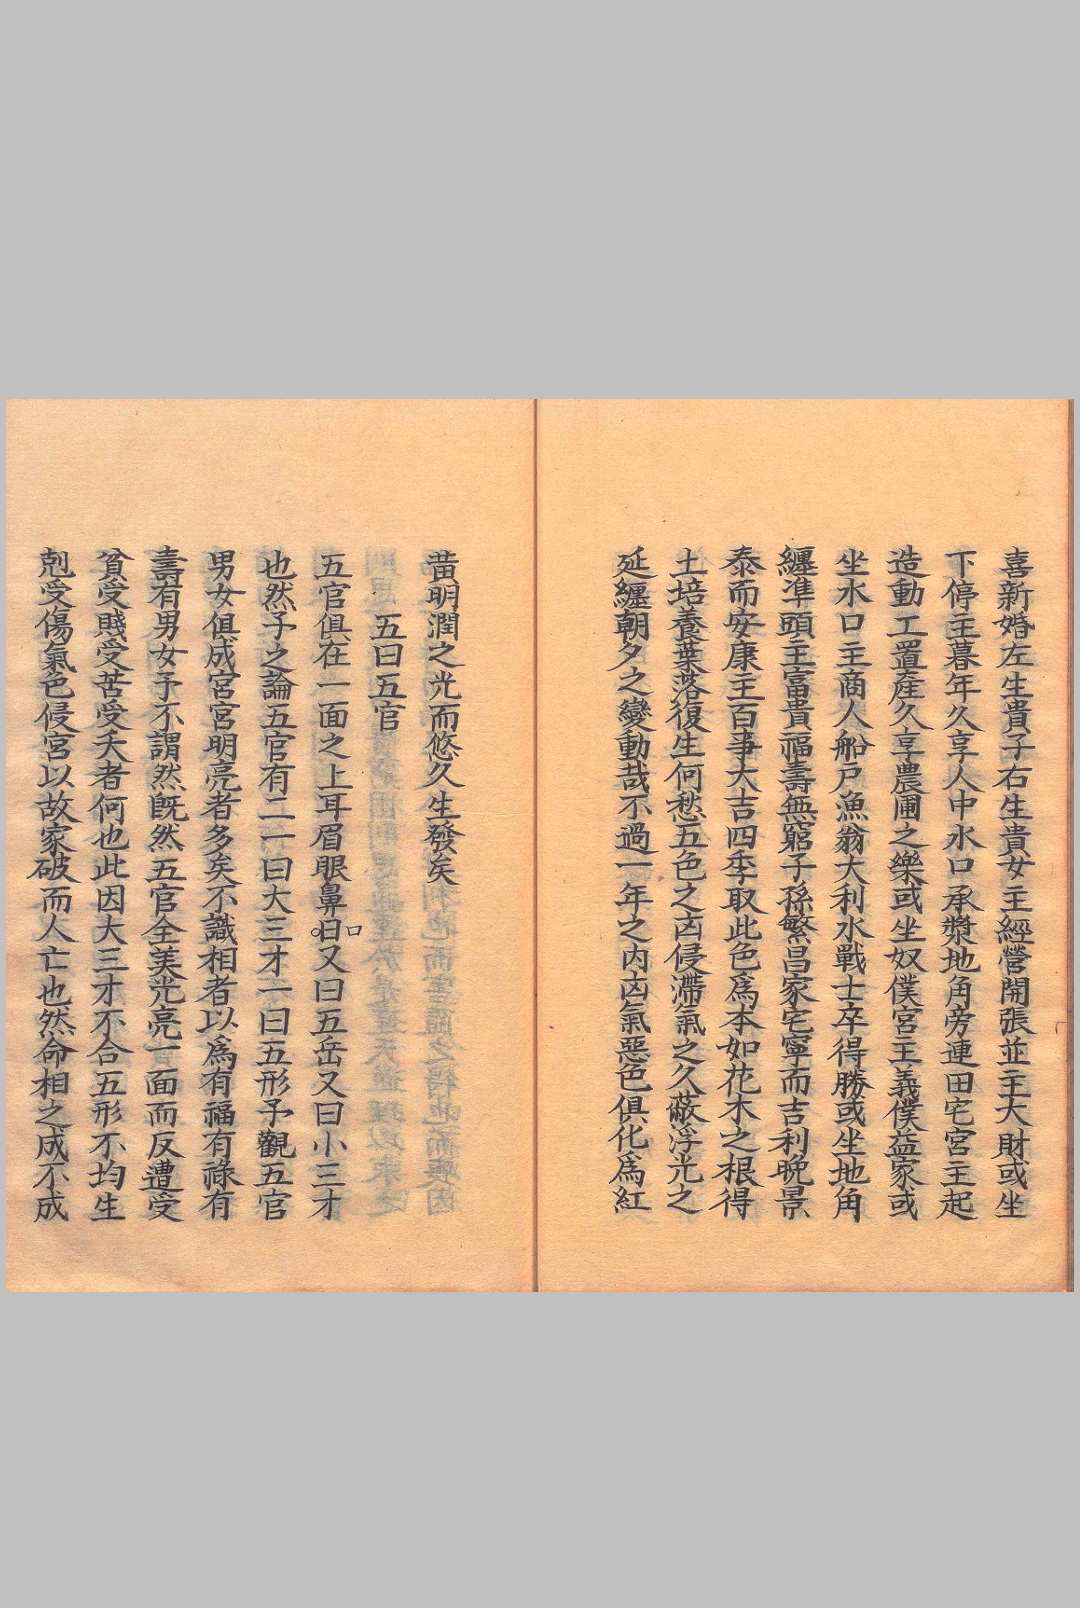 喜新婚左生貴子右生貴女主經營開張並主大財或坐
下停主暮年久享人中水口承漿地角旁連田宅宮主起
造動工置產久享農圃之樂或坐奴僕宮主義僕益家或
坐水口主商人船戶漁翁大利水戰士卒得勝或坐地角
纏準頭主富貴福壽無窮子孫繁昌家宅寧而吉利晚景
泰而安康主百事大吉四季取此色為本如花木之根得
土培養葉落復生何愁五色之凶侵滯氣之久蔽浮光之
延纏朝夕之變動哉不過一年之內凶氣惡色俱化為紅
黃明潤之光而悠久生發矣
五曰五官
五官俱在一面之上耳眉眼鼻口又曰五岳又曰小三才
也然子之論五官有二一曰大三才一曰五形予觀五官
男女俱成宮宮明亮者多矣不識相者以為有福有祿有
壽有男女予不謂然既然五官全美光亮一面而反遭受
貧受賤受苦受夭者何也此因大三才不合五形不均生
剋受傷氣色侵宮以故家破而人亡也然命相之成不成